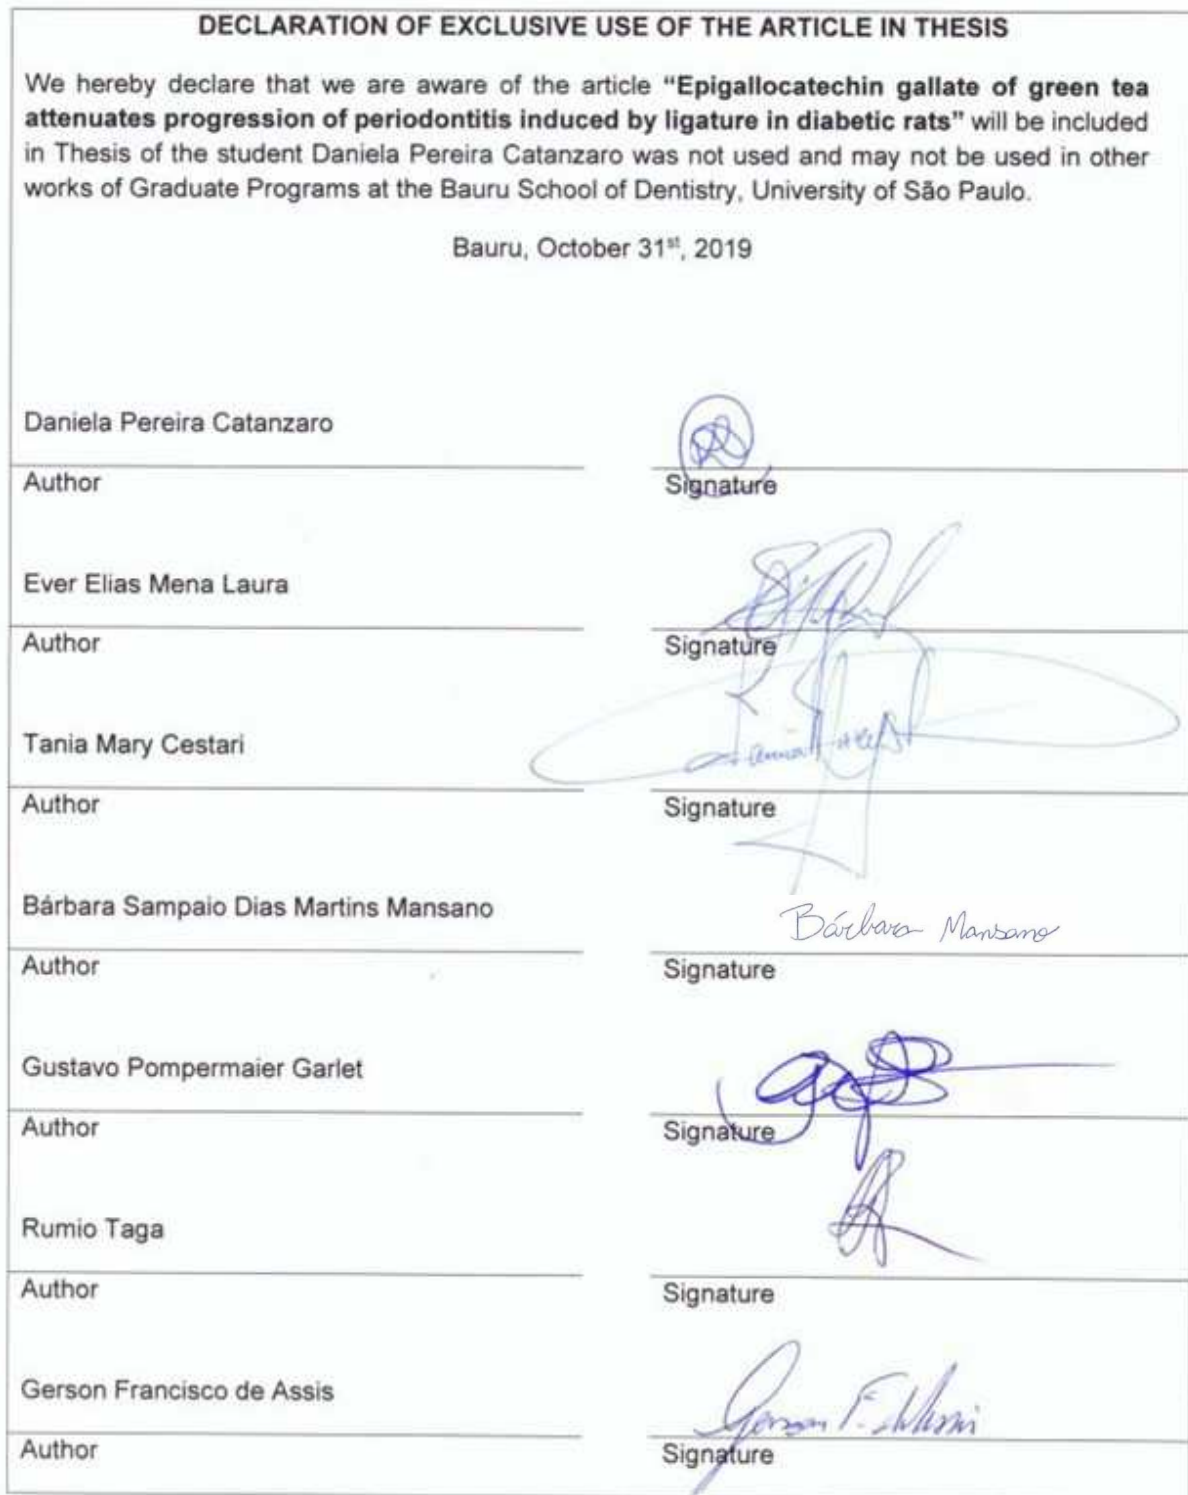 DECLARATION OF EXCLUSIVE USE OF THE ARTICLE IN THESIS
We hereby declare that we are aware of the article "Epigallocatechin gallate of green tea
attenuates progression of periodontitis induced by ligature in diabetic rats" will be included
in Thesis of the student Daniela Pereira Catanzaro was not used and may not be used in other
works of Graduate Programs at the Bauru School of Dentistry, University of São Paulo.
Bauru, October 31st, 2019
Daniela Pereira Catanzaro
Author Signature
Ever Elias Mena Laura
Author Signature
Tania Mary Cestari
Author Signature
Bárbara Sampaio Dias Martins Mansano Bárbara Mansano
Author Signature
Gustavo Pompermaier Garlet
Author Signature
Rumio Taga
Author Signature
Gerson Francisco de Assis Gerson F. de Assis
Author Signature